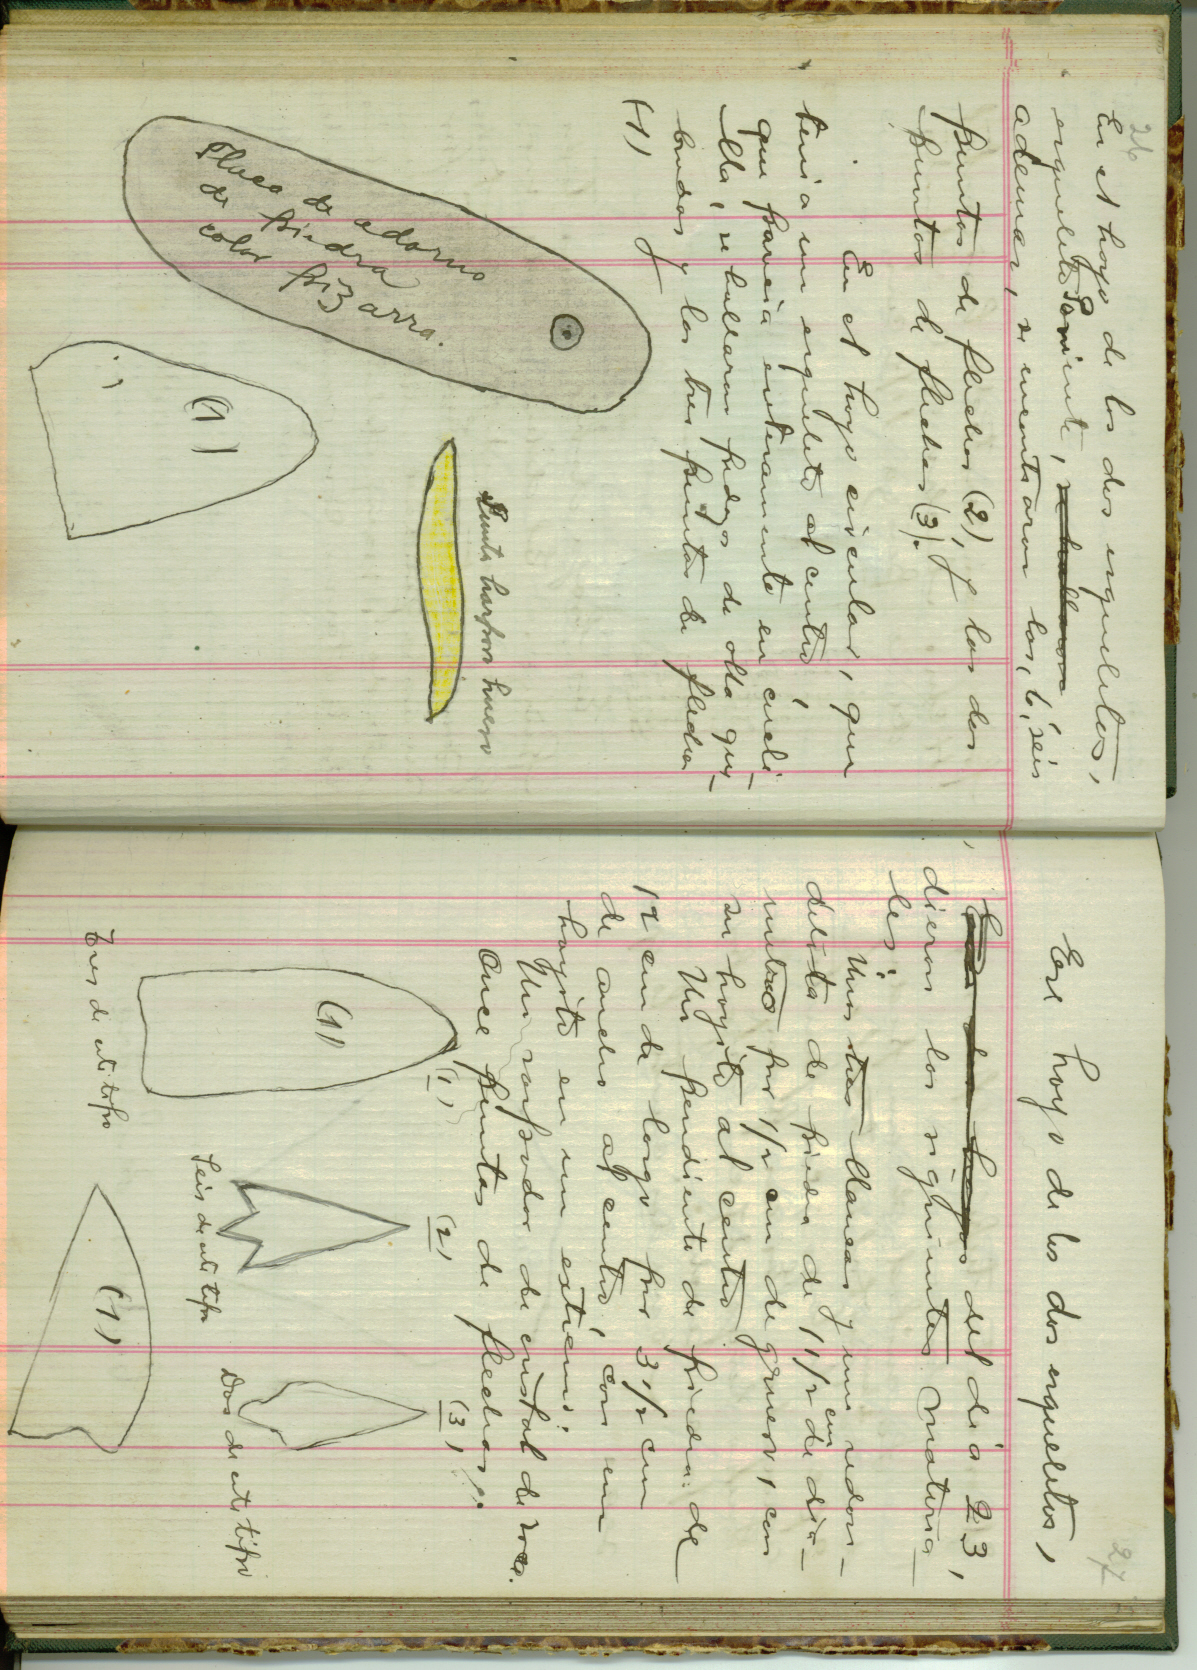 26
En el hoyo de los dos esqueletos,
esqueleto Poniente, se hallaron
ademas, se encontraron las, 6, seis
puntas de flechas (2), y las dos
puntas de flechas (3).
En el hoyo circular, que
tenia un esqueleto al centro,
que parecia enteramente en cucli
llas, se hallaron pedazos de olla que-
brados y las tres puntas de flechas
(1) y
Placa de adorno
de piedra
color pizarra.
Punta harpon hueso
(1)
27
Ese hoyo de los dos esqueletos,
del dia 23,
dieron los siguientes materia-
les:
Unas tres blancas y una redon-
delita de piedra de 1 1/2 cm de dia-
metro por 1/2 cm de grueso, con
su hoyito al centro.
Un pendiente de piedra: de
12 cm de largo por 3 1/2 cm
de ancho al centro, con un
hoyito en un extremo.
Un raspador de cristal de roca.
Once puntas de flechas:
(1)
(1)
(2)
(3)
Tres de este tipo
Seis de este tipo
Dos de este tipo
(1)